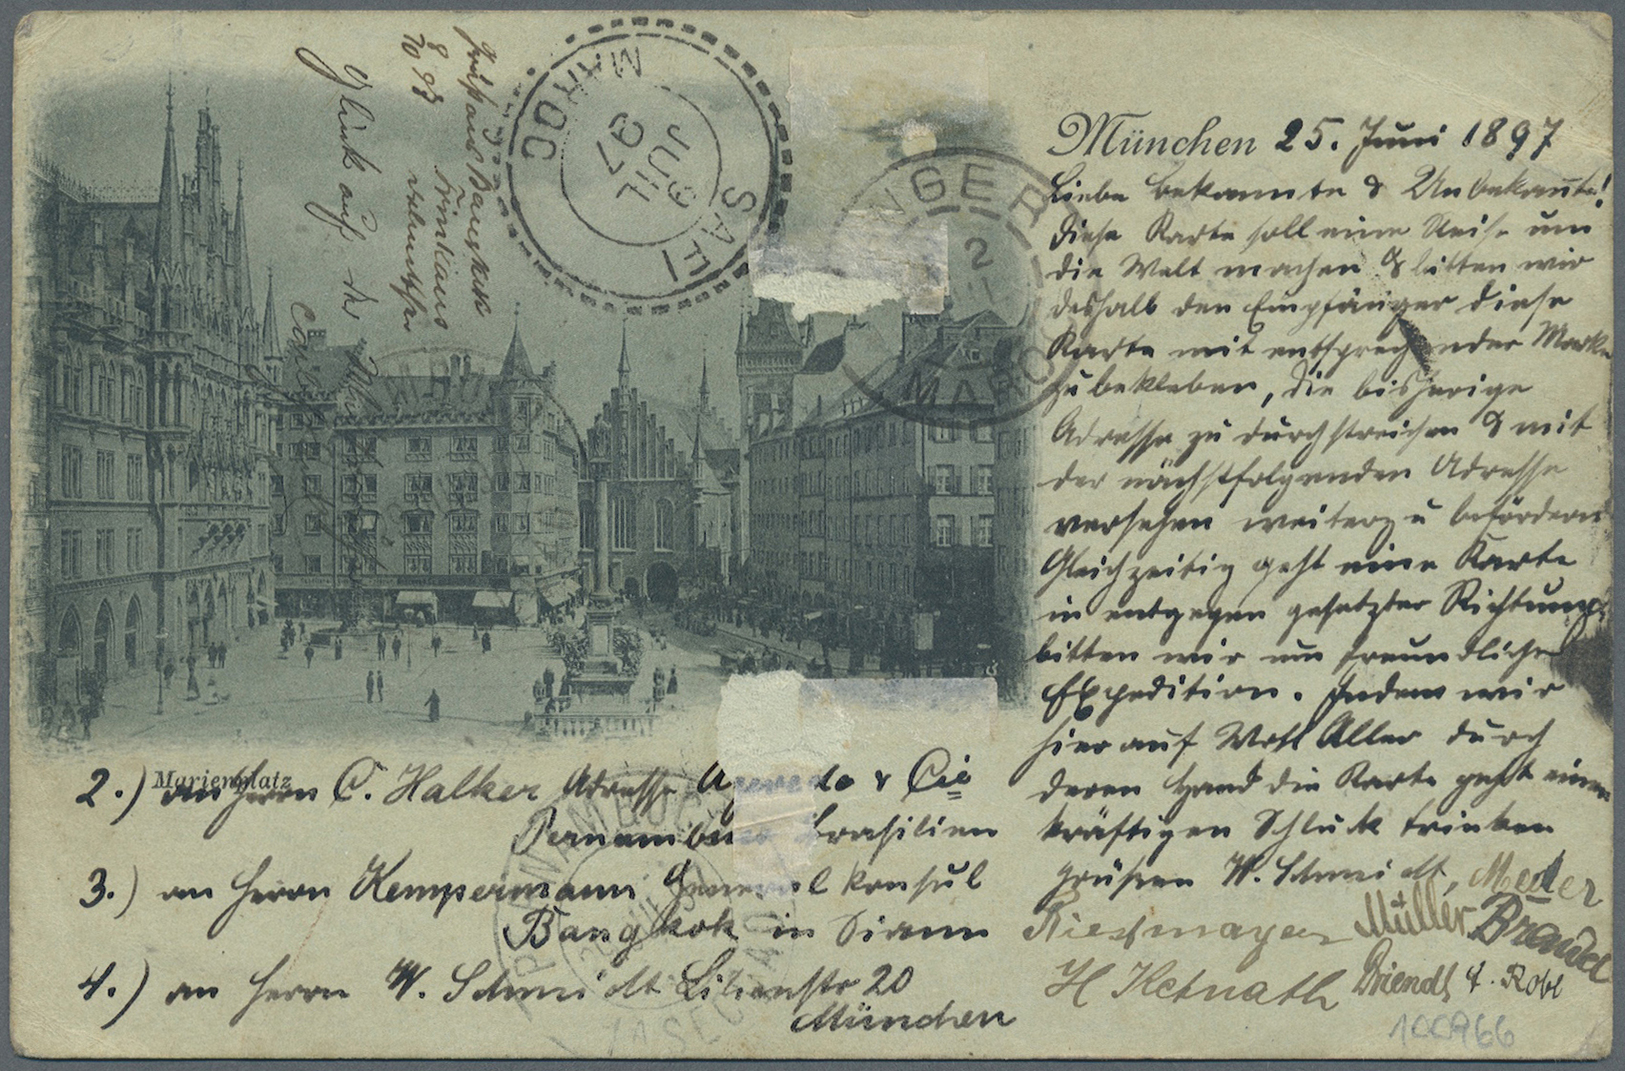 München 25. Juni 1897
Liebe Bekannte & Unbekannte!
Diese Karte soll eine Reise um
die Welt machen & bitten wir
deshalb den Empfänger diese
Karte mit entsprechender Marke
zu bekleben, die bisherige
Adresse zu durchstreichen & mit
der nächstfolgenden Adresse
versehen weiterzu befördern
Gleichzeitig geht eine Karte
in entgegen gesetzter Richtung,
bitten wir um freundliche
Expedition. Indem wir
hier auf Wohl Aller durch
deren Hand die Karte geht einen
kräftigen Schluck trinken
grüßen W. Schmidt, Meder
Riesmayer Müller Brendel
H Hetnath Briendl f. Robl
100966
SAFFI
9 JUIL 97
MAROC
TANGER
2
MAROC
Gruß aus Bangkok
8/10 97
Glück auf der
Marienplatz
2.) an Herrn C. Halker Adresse & Cie
Pernambuco Brasilien
3.) an Herrn Kempermann General konsul
Bangkok in Siam
4.) an Herrn W. Schmidt Lilienstr 20
München
PERNAMBUCO